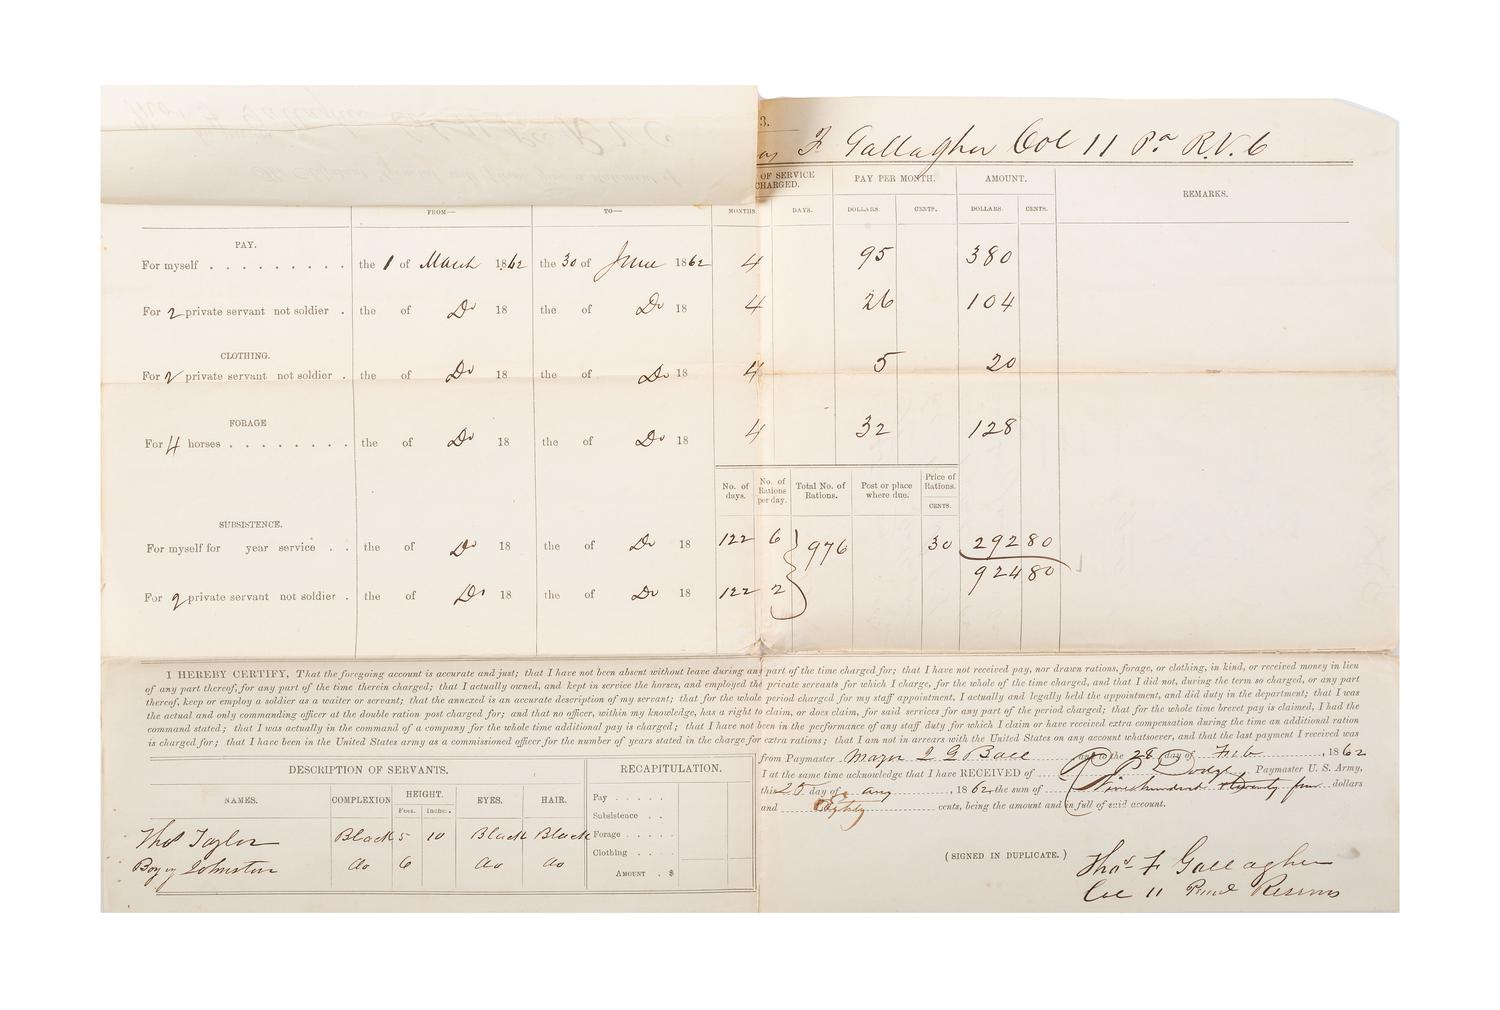 3.
F Gallagher Col 11 Pa R.V.C
OF SERVICE CHARGED. PAY PER MONTH. AMOUNT. REMARKS.
FROM— TO— MONTHS. DAYS. DOLLARS. CENTS. DOLLARS. CENTS.
PAY.
For myself . . . . . . . . . the 1 of March 1862 the 30 of June 1862 4 95 380
For 2 private servant not soldier . the of Do 18 the of Do 18 4 26 104
CLOTHING.
For 2 private servant not soldier . the of Do 18 the of Do 18 4 5 20
FORAGE
For 4 horses . . . . . . . . the of Do 18 the of Do 18 4 32 128
No. of days. No. of Rations per day. Total No. of Rations. Post or place where due. Price of Rations. CENTS.
SUBSISTENCE.
For myself for year service . . the of Do 18 the of Do 18 122 6 976 30 292 80
924 80
For 2 private servant not soldier . the of Do 18 the of Do 18 122 2
I HEREBY CERTIFY, That the foregoing account is accurate and just; that I have not been absent without leave during any part of the time charged for; that I have not received pay, nor drawn rations, forage, or clothing, in kind, or received money in lieu
of any part thereof, for any part of the time therein charged; that I actually owned, and kept in service the horses, and employed the private servants for which I charge, for the whole of the time charged, and that I did not, during the term so charged, or any part
thereof, keep or employ a soldier as a waiter or servant; that the annexed is an accurate description of my servant; that for the whole period charged for my staff appointment, I actually and legally held the appointment, and did duty in the department; that I was
the actual and only commanding officer at the double ration post charged for; and that no officer, within my knowledge, has a right to claim, or does claim, for said services for any part of the period charged; that for the whole time brevet pay is claimed, I had the
command stated; that I was actually in the command of a company for the whole time additional pay is charged; that I have not been in the performance of any staff duty for which I claim or have received extra compensation during the time an additional ration
is charged for; that I have been in the United States army as a commissioned officer for the number of years stated in the charge for extra rations; that I am not in arrears with the United States on any account whatsoever, and that the last payment I received was
from Paymaster Major I G Ball and to the 28 day of Feb , 1862
I at the same time acknowledge that I have RECEIVED of Dodge, Paymaster U. S. Army,
this 25 day of Aug , 1862, the sum of Nine hundred & twenty four dollars
and Eighty cents, being the amount and in full of said account.
DESCRIPTION OF SERVANTS. RECAPITULATION.
NAMES. COMPLEXION HEIGHT. EYES. HAIR.
Feet. Inches.
Pay . . . . .
Subsistence . .
Forage . . . . .
Clothing . . . .
AMOUNT . $
Thos Taylor Black 5 10 Black Black
Johnston do 6 do do
(SIGNED IN DUPLICATE.)
Thos F Gallagher
Col 11 Penna Reserves